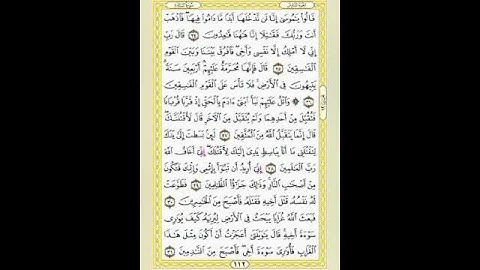 الجزء السادس
سورة المائدة
قَالُوا۟ يَـٰمُوسَىٰٓ إِنَّا لَن نَّدْخُلَهَآ أَبَدًا مَّا دَامُوا۟ فِيهَا ۖ فَٱذْهَبْ
أَنتَ وَرَبُّكَ فَقَـٰتِلَآ إِنَّا هَـٰهُنَا قَـٰعِدُونَ ٢٤ قَالَ رَبِّ
إِنِّى لَآ أَمْلِكُ إِلَّا نَفْسِى وَأَخِى ۖ فَٱفْرُقْ بَيْنَنَا وَبَيْنَ ٱلْقَوْمِ
ٱلْفَـٰسِقِينَ ٢٥ قَالَ فَإِنَّهَا مُحَرَّمَةٌ عَلَيْهِمْ ۛ أَرْبَعِينَ سَنَةً ۛ
يَتِيهُونَ فِى ٱلْأَرْضِ ۚ فَلَا تَأْسَ عَلَى ٱلْقَوْمِ ٱلْفَـٰسِقِينَ
٢٦ ۞ وَٱتْلُ عَلَيْهِمْ نَبَأَ ٱبْنَىْ ءَادَمَ بِٱلْحَقِّ إِذْ قَرَّبَا قُرْبَانًا
فَتُقُبِّلَ مِنْ أَحَدِهِمَا وَلَمْ يُتَقَبَّلْ مِنَ ٱلْـَٔاخَرِ قَالَ لَأَقْتُلَنَّكَ ۖ
قَالَ إِنَّمَا يَتَقَبَّلُ ٱللَّهُ مِنَ ٱلْمُتَّقِينَ ٢٧ لَئِنۢ بَسَطتَ إِلَىَّ يَدَكَ
لِتَقْتُلَنِى مَآ أَنَا۠ بِبَاسِطٍ يَدِىَ إِلَيْكَ لِأَقْتُلَكَ ۖ إِنِّىٓ أَخَافُ ٱللَّهَ
رَبَّ ٱلْعَـٰلَمِينَ ٢٨ إِنِّىٓ أُرِيدُ أَن تَبُوٓأَ بِإِثْمِى وَإِثْمِكَ فَتَكُونَ
مِنْ أَصْحَـٰبِ ٱلنَّارِ ۚ وَذَٰلِكَ جَزَٰٓؤُا۟ ٱلظَّـٰلِمِينَ ٢٩ فَطَوَّعَتْ
لَهُۥ نَفْسُهُۥ قَتْلَ أَخِيهِ فَقَتَلَهُۥ فَأَصْبَحَ مِنَ ٱلْخَـٰسِرِينَ ٣٠
فَبَعَثَ ٱللَّهُ غُرَابًا يَبْحَثُ فِى ٱلْأَرْضِ لِيُرِيَهُۥ كَيْفَ يُوَٰرِى
سَوْءَةَ أَخِيهِ ۚ قَالَ يَـٰوَيْلَتَىٰٓ أَعَجَزْتُ أَنْ أَكُونَ مِثْلَ هَـٰذَا
ٱلْغُرَابِ فَأُوَٰرِىَ سَوْءَةَ أَخِى ۖ فَأَصْبَحَ مِنَ ٱلنَّـٰدِمِينَ ٣١
١١٢